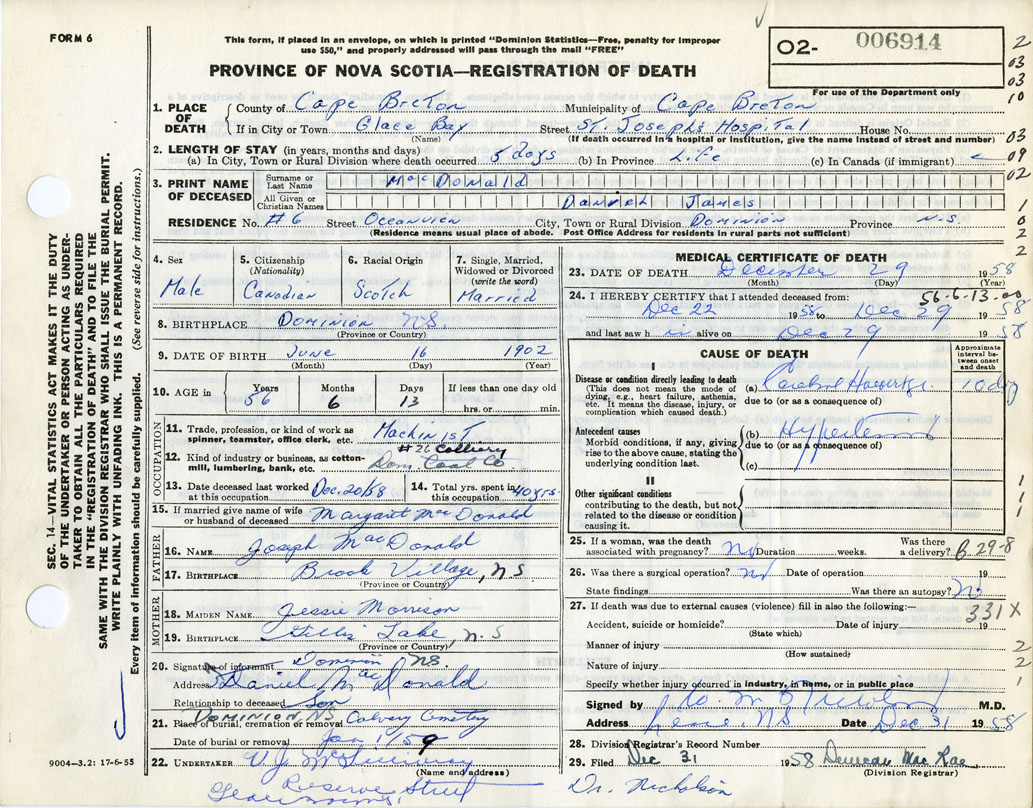 FORM 6
This form, if placed in an envelope, on which is printed "Dominion Statistics—Free, penalty for improper
use $50," and properly addressed will pass through the mail "FREE"
02- 006914
For use of the Department only
PROVINCE OF NOVA SCOTIA—REGISTRATION OF DEATH
1. PLACE OF DEATH County of Cape Breton Municipality of Cape Breton
If in City or Town Glace Bay Street St. Joseph's Hospital House No.
(Name) (If death occurred in a hospital or institution, give the name instead of street and number)
2. LENGTH OF STAY (in years, months and days)
(a) In City, Town or Rural Division where death occurred 5 days (b) In Province Life (c) In Canada (if immigrant)
3. PRINT NAME OF DECEASED
Surname or Last Name MacDonald
All Given or Christian Names Daniel James
RESIDENCE No. #6 Street Oceanview City, Town or Rural Division Dominion Province N.S.
(Residence means usual place of abode. Post Office Address for residents in rural parts not sufficient)
4. Sex Male
5. Citizenship (Nationality) Canadian
6. Racial Origin Scotch
7. Single, Married, Widowed or Divorced (write the word) Married
8. BIRTHPLACE Dominion N.S.
(Province or Country)
9. DATE OF BIRTH June 16 1902
(Month) (Day) (Year)
10. AGE in Years 56 Months 6 Days 13 If less than one day old hrs. or min.
OCCUPATION
11. Trade, profession or kind of work as spinner, teamster, office clerk, etc. Machinist
12. Kind of industry or business, as cotton-mill, lumbering, bank, etc. #26 Colliery Dom. Coal Co
13. Date deceased last worked at this occupation Dec. 20/58
14. Total yrs. spent in this occupation 40 yrs.
15. If married give name of wife or husband of deceased Margaret MacDonald
FATHER
16. NAME Joseph MacDonald
17. BIRTHPLACE Brook Village, N.S.
(Province or Country)
MOTHER
18. MAIDEN NAME Jessie Morrison
19. BIRTHPLACE Gillis Lake, N.S
(Province or Country)
20. Signature of informant Dominion NS.
Address Daniel MacDonald
Relationship to deceased Son
DOMINION, NS
21. Place of burial, cremation or removal Calvary Cemetery
Date of burial or removal Jan 1/59
22. UNDERTAKER V. J. McGillivray
(Name and address)
Reserve Street
MEDICAL CERTIFICATE OF DEATH
23. DATE OF DEATH December 29 1958
(Month) (Day) (Year)
56-6-13-00
24. I HEREBY CERTIFY that I attended deceased from:
Dec 22 1958 to Dec 29 1958
and last saw h i alive on Dec 29 1958
CAUSE OF DEATH
Approximate interval between onset and death
I
Disease or condition directly leading to death
(This does not mean the mode of dying, e.g., heart failure, asthenia, etc. It means the disease, injury, or complication which caused death.)
(a) 10 dy
due to (or as a consequence of)
Antecedent causes
Morbid conditions, if any, giving rise to the above cause, stating the underlying condition last.
(b) Hypertension
due to (or as a consequence of)
(c)
II
Other significant conditions contributing to the death, but not related to the disease or condition causing it.
25. If a woman, was the death associated with pregnancy? No Duration weeks. Was there a delivery? B.29-8
26. Was there a surgical operation? No Date of operation 19
State findings Was there an autopsy? No
27. If death was due to external causes (violence) fill in also the following:— 331X
Accident, suicide or homicide? Date of injury 19
(State which)
Manner of injury
(How sustained)
Nature of injury
Specify whether injury occurred in industry, in home, or in public place
Signed by M.D.
Address NS Date Dec 31 1958
28. Division Registrar's Record Number
29. Filed Dec 31 1958 Duncan MacRae
(Division Registrar)
Dr. Nicholson
SEC. 14—VITAL STATISTICS ACT MAKES IT THE DUTY
OF THE UNDERTAKER OR PERSON ACTING AS UNDER-
TAKER TO OBTAIN ALL THE PARTICULARS REQUIRED
IN THE "REGISTRATION OF DEATH" AND TO FILE THE
SAME WITH THE DIVISION REGISTRAR WHO SHALL ISSUE THE BURIAL PERMIT.
WRITE PLAINLY WITH UNFADING INK. THIS IS A PERMANENT RECORD.
Every item of information should be carefully supplied. (See reverse side for instructions.)
9004—3.2: 17-6-55
2
03
03
10
03
09
02
1
6
2
2
1
1
1
2
2
1